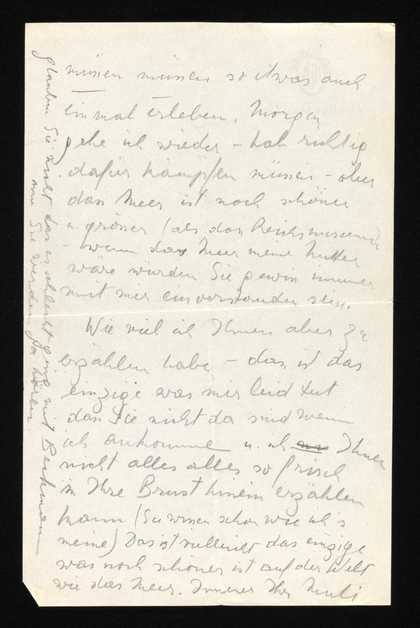 müssen müssen so etwas auch
Einmal erleben. Morgen
gehe ich wieder – hab richtig
dafür kämpfen müssen – aber
das Meer ist noch schöner
u. gröner (als das Reichsmuseum
– wenn das Meer meine Mutter
wäre würden Sie gewiss immer
mit mir einverstanden sein.
Wie viel ich Ihnen aber zu
erzählen habe – das ist das
einzige was mir leid tut
dass Sie nicht da sind wenn
ich ankomme u. ich Ihnen
nicht alles alles so frisch
in Ihre Brust hinein erzählen
kann (Sie wissen schon wie ich's
meine) Das ist vielleicht das einzige
was noch schöner ist auf der Welt
wie das Meer. Immer Ihr
glauben Sie nicht dass es schlecht ging mit Beckmann
Sie werden ja hören